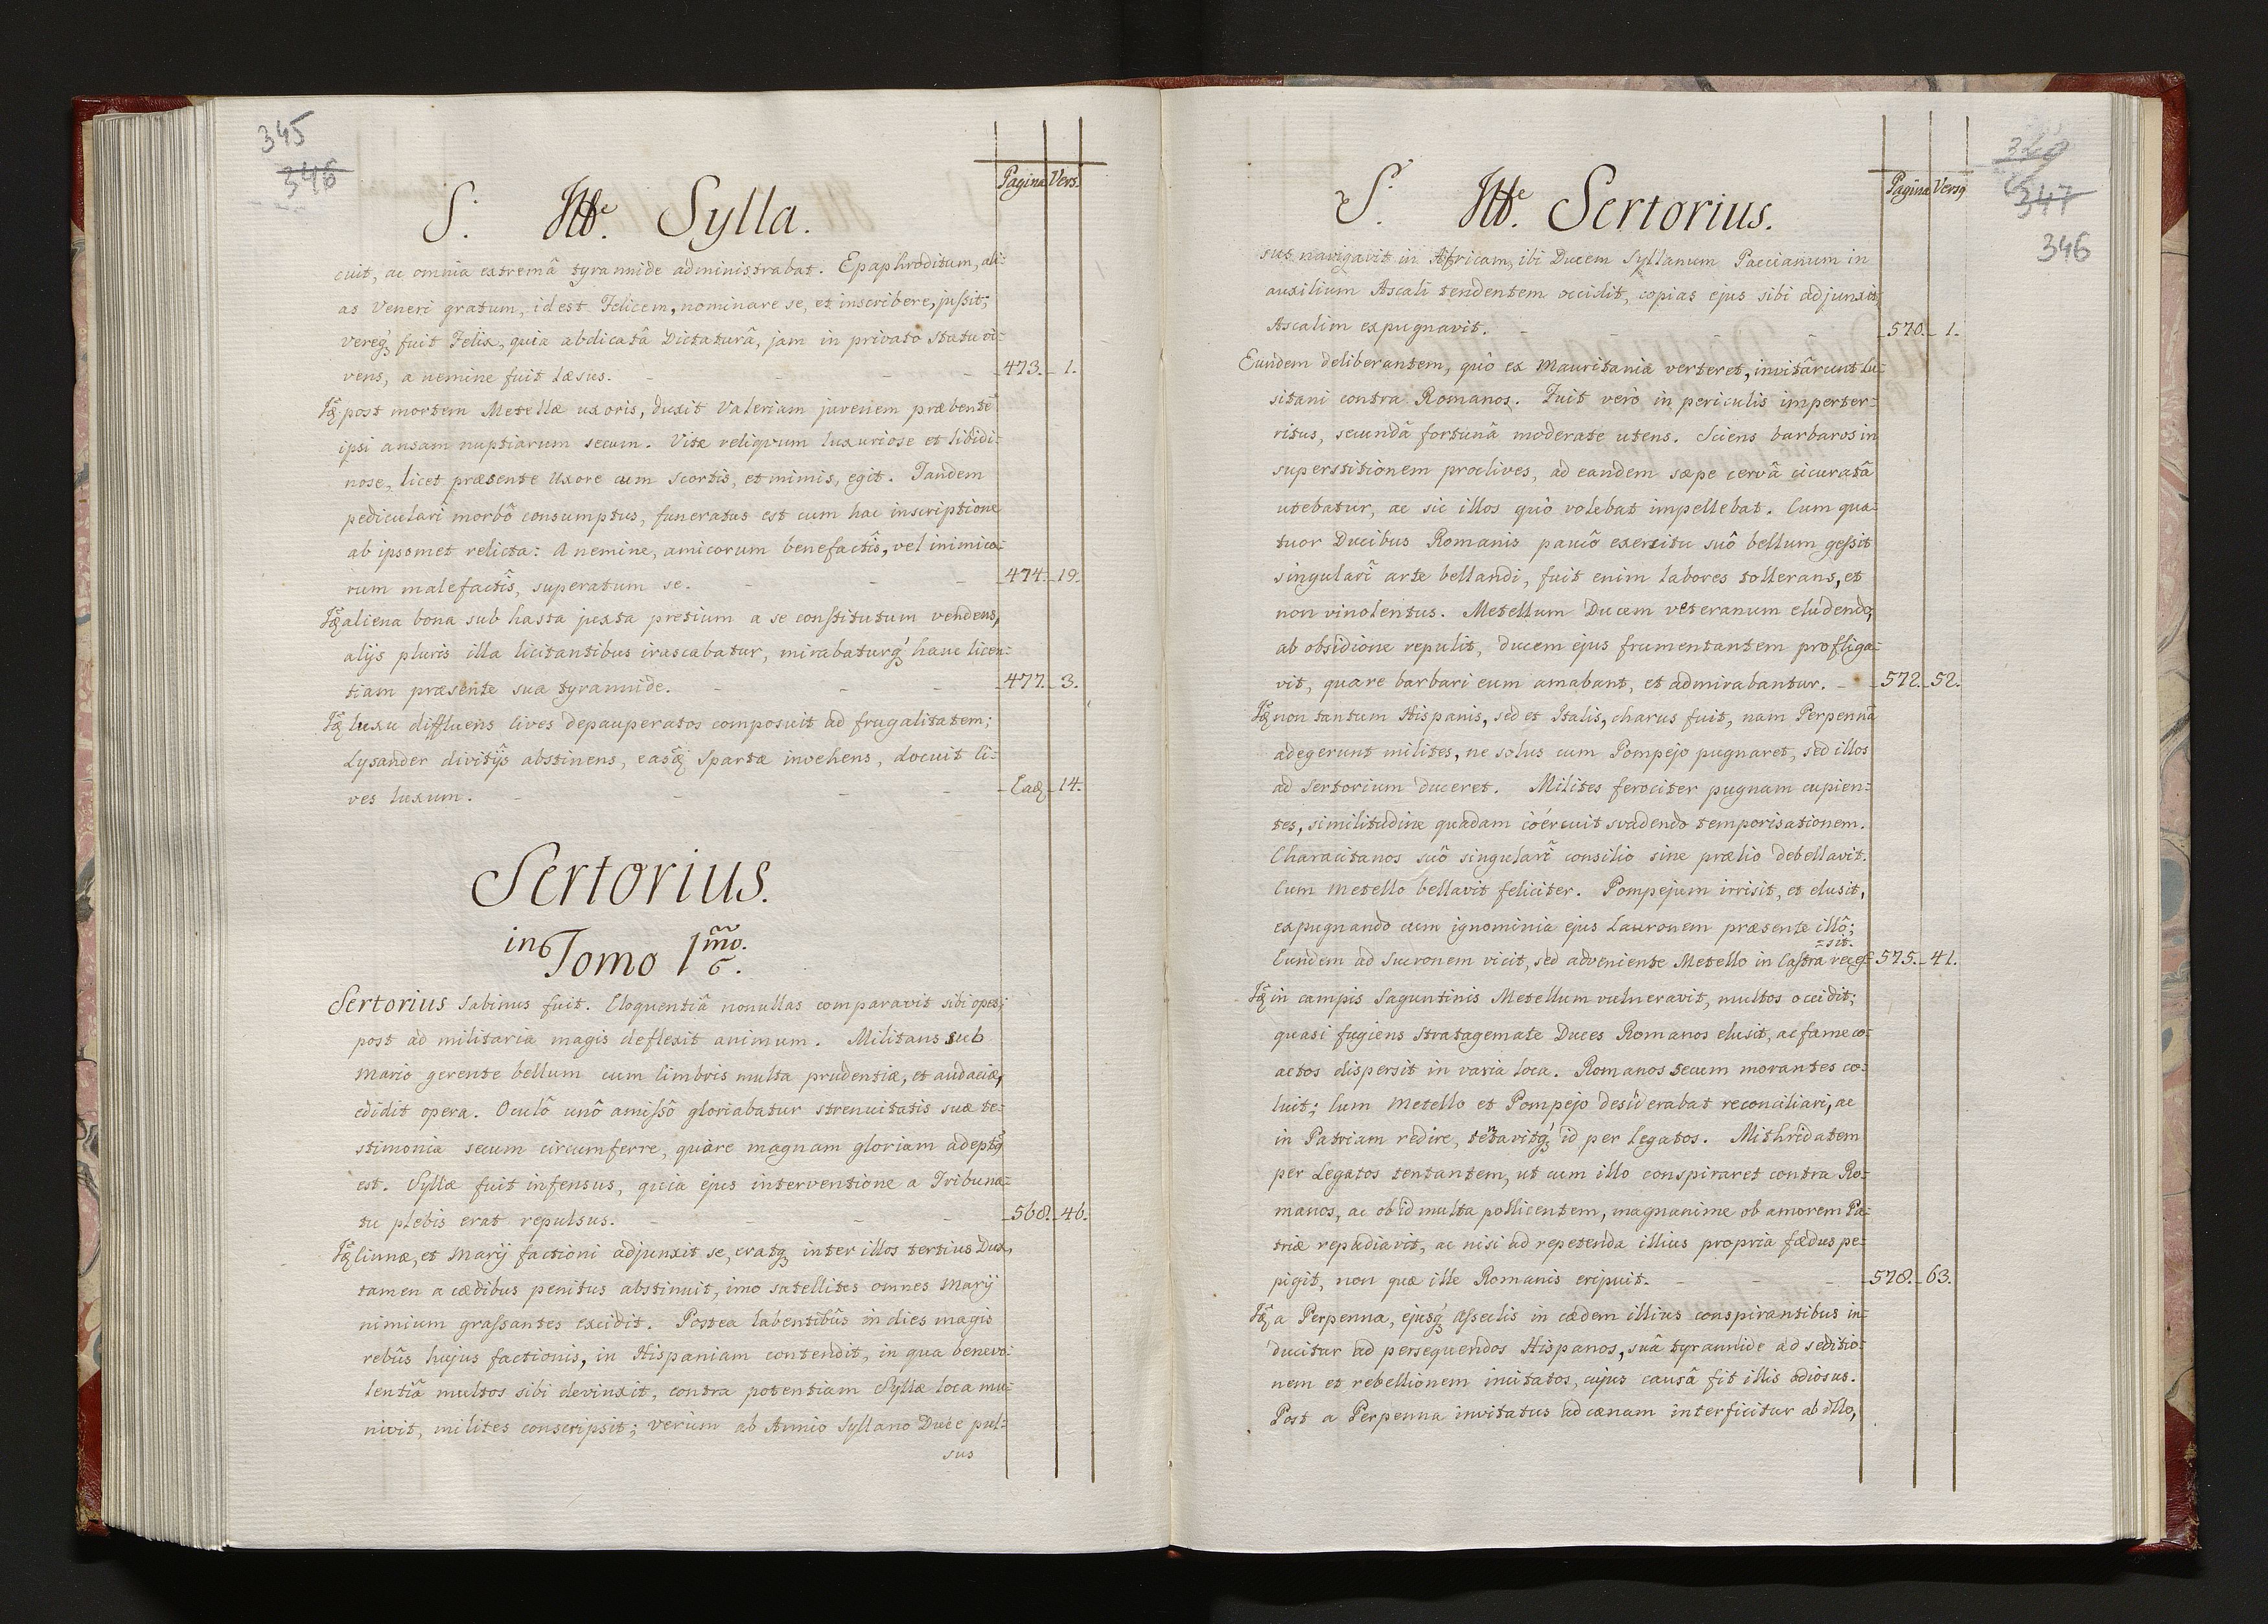 345
346
Pagina Vers.
S. Sylla.
cuit, ac omnia extremâ tyrannide administrabat. Epaphroditum, ali-
as Veneri gratum, id est Felicem, nominare se, et inscribere, jussit;
vereq́ȝ fuit Felix, quia abdicatâ Dictaturâ, jam in privato statu vi-
vens, a nemine fuit læsus. - - - 473. 1.
post mortem Metellæ uxoris, duxit Valeriam juvenem præbentē
ipsi ansam nuptiarum secum. Vitæ reliqvum luxuriose et libidi-
nose, licet præsente Uxore cum scortis, et mimis, egit. Tandem
pediculari morbô consumptus, funeratus est cum hac inscriptione
ab ipsomet relicta: A nemine, amicorum benefactîs, vel inimico-
rum malefactîs, superatum se. - - - 474. 19.
aliena bona sub hasta juxta pretium a se constitutum vendens,
alijs pluris illa licitantibus irascabatur, mirabaturq́ȝ hanc licen-
tiam præsente sua tyrannide. - - - 477. 3.
luxu diffluens Cives depauperatos composuit ad frugalitatem;
Lysander divitijs abstinens, easq́ȝ Spartæ invehens, docuit Ci-
ves luxum. - - - - Eadȝ 14.
Sertorius.
in Tomo 1mo.
6.
Sertorius Sabinus fuit. Eloquentiâ nonullas comparavit sibi opes;
post ad militaria magis deflexit animum. Militans sub
Mario gerente bellum cum Cimbris multa prudentiæ, et audaciæ,
edidit opera. Oculô unô amissô gloriabatur strenuitatis suæ te-
stimonia secum circumferre, quàre magnam gloriam adeptȝ
est. Syllæ fuit infensus, quia ejus interventione a Tribuna-
tu plebis erat repulsus. - - - - 568. 46.
Cinnæ, et Marij factioni adjunxit se, eratqȝ inter illos tertius Dux,
tamen a cædibus penitus abstinuit, imo satellites omnes Marij
nimium grassantes excidit. Postea labentibûs in dies magis
rebûs hujus factionis, in Hispaniam contendit, in qua benevo-
lentiâ multos sibi devinxit, contra potentiam Syllæ loca mu-
nivit, milites conscripsit; verùm ab Annio Syllano Duce pul-
sus
346
347
Pagina Versȝ
S. Sertorius.
sus navigavit in Africam, ibi Ducem Syllanum Paccianum in
auxilium Ascali tendentem occidit, copias ejus sibi adjunxit,
Ascalim expugnavit. - - - 570. 1.
Eundem deliberantem, quò ex Mauritaniâ verteret, invitârunt Lu-
sitani contra Romanos. Fuit verò in periculis imperter-
ritus, secundâ fortunâ moderate utens. Sciens barbaros in
superstitionem proclives, ad eandem sæpe cervâ cicuratâ
utebatur, ac sic illos quò volebat impellebat. Cum qua-
tuor Ducibus Romanis paucô exercitu suô bellum gessit
singularî arte bellandi, fuit enim labores tollerans, et
non vinolentus. Metellum Ducem veteranum eludendo,
ab obsidione repulit, ducem ejus frumentantem profliga-
vit, quare barbari eum amabant, et admirabantur. - 572. 52.
non tantum Hispanis, sed et Italis, charus fuit, nam Perpennâ
adegerunt milites, ne solus cum Pompejo pugnaret, sed illos
ad Sertorium duceret. Milites ferociter pugnam cupien-
tes, similitudine quadam coércuit svadendo temporisationem.
Characitanos suô singularî consilio sine prælio debellavit.
Cum Metello bellavit feliciter. Pompejum irrisit, et elusit,
expugnando cum ignominia ejus Lauronem præsente illô;
=sit.
Eundem ad Sucronem vicit, sed adveniente Metello in Castra reces- 575. 41.
in campis Saguntinis Metellum vulneravit, multos occidit;
quasi fugiens stratagemate Duces Romanos elusit, ac fame co-
actos dispersit in varia loca. Romanos secum morantes co-
luit; Cum Metello et Pompejo desiderabat reconciliari, ac
in Patriam redire, tentavitq́ȝ id per Legatos. Mithridatem
per Legatos tentantem, ut cum illo conspiraret contra Ro-
manos, ac ob id multa pollicentem, magnanime ob amorem Pa-
triæ repudiavit, ac nisi ad repetenda illius propria fœdus pe-
pigit, non quæ ille Romanis eripuit. - - - 578. 63.
a Perpenna, ejusq́ȝ asseclis in cædem illius conspirantibus in-
ducitur ad persequendos Hispanos, suâ tyrannide ad seditio-
nem et rebellionem incitatos, cujus causâ fit illis odiosus.
Post a Perpenna invitatus ad cænam interficitur ab illo,